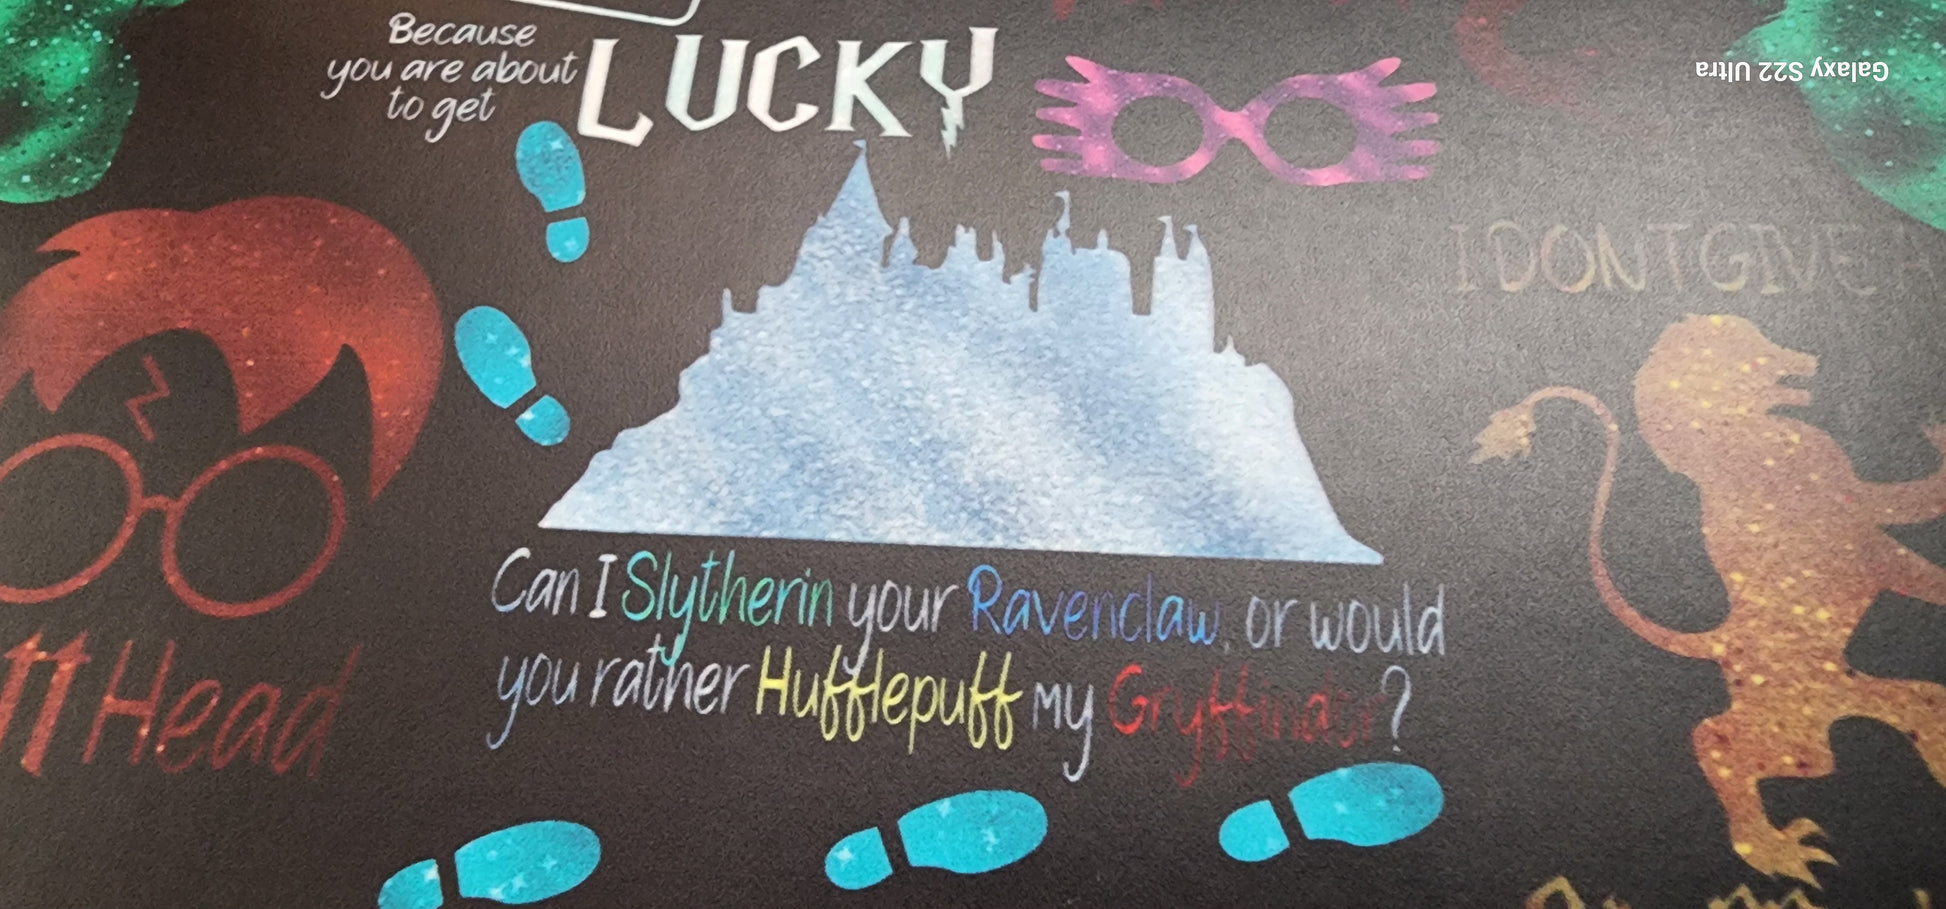 Because
you are about
to get
LUCKY
Galaxy S22 Ultra
I DONT GIVE A
Can I Slytherin your Ravenclaw, or would
you rather Hufflepuff my Gryffindor?
Head